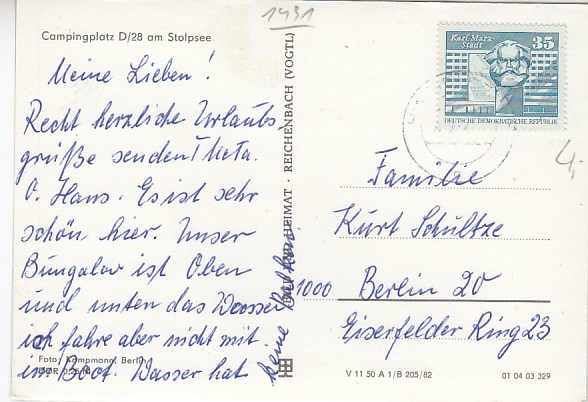 1431
Campingplatz D/28 am Stolpsee
Meine Lieben!
Recht herzliche Urlaubs-
grüße senden Meta.
O. Hans. Es ist sehr
schön hier. Unser
Bungalow ist Oben
und unten das Wasser
ich fahre aber nicht mit
im Boot. Wasser hat
keine Balken
Foto: Kampmann, Berlin
HEIMAT · REICHENBACH (VOGTL)
Karl-Marx-
Stadt
35
DEUTSCHE DEMOKRATISCHE REPUBLIK
4,-
Familie
Kurt Schultze
1000 Berlin 20
Eiserfelder Ring 23
V 11 50 A 1/B 205/82
01 04 03 329